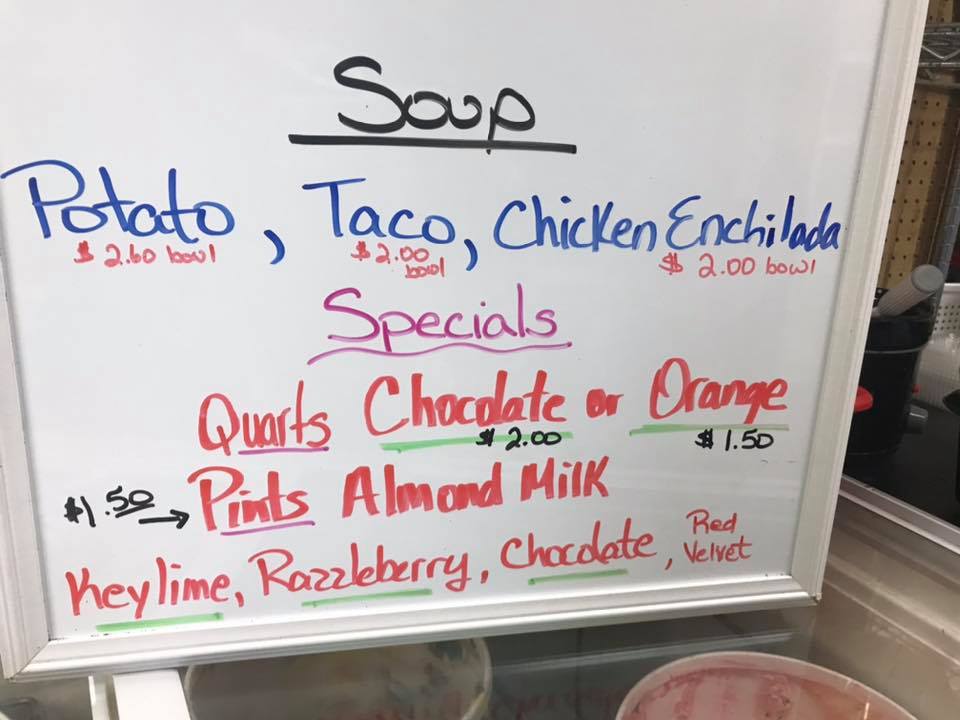 Soup
Potato, Taco, Chicken Enchilada
$ 2.60 bowl $ 2.00 bowl $ 2.00 bowl
Specials
Quarts Chocolate or Orange
$ 2.00 $ 1.50
$1.50 → Pints Almond Milk
Keylime, Razzleberry, Chocolate, Red Velvet